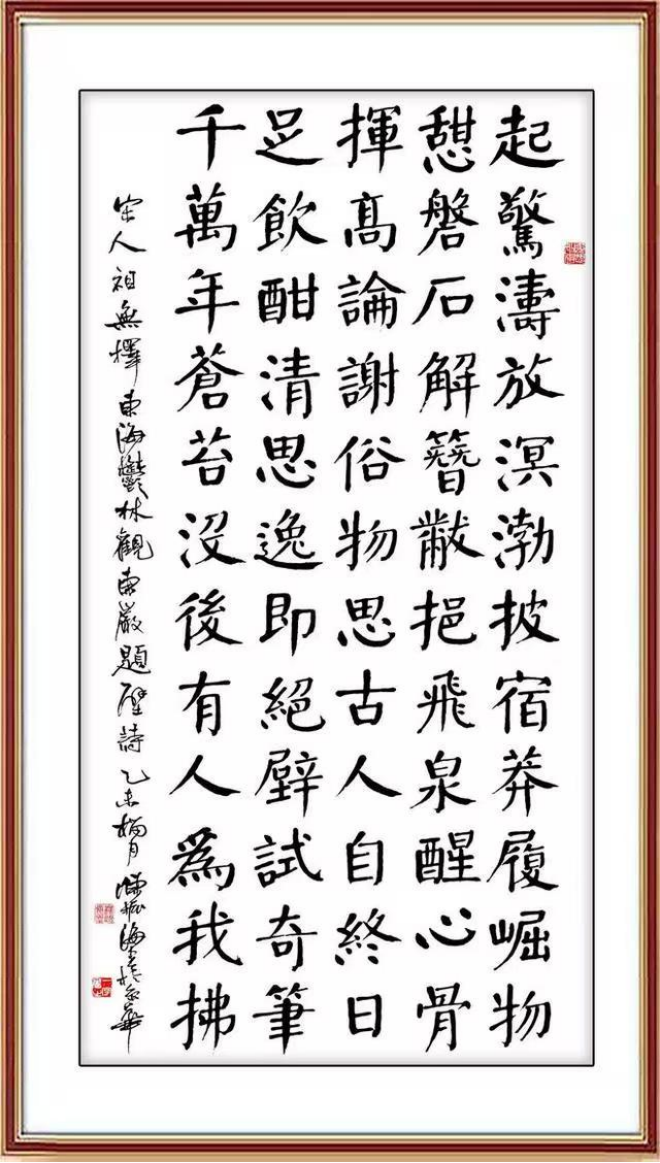 起驚濤放溟渤披宿莽履崛物
憇磐石解簪黻挹飛泉醒心骨
揮髙論謝俗物思古人自終日
足飲酣清思逸即絕壁試奇筆
千萬年蒼苔沒後有人為我拂
宋人祖無擇東海鬱林觀東巖題壁詩乙未梅月